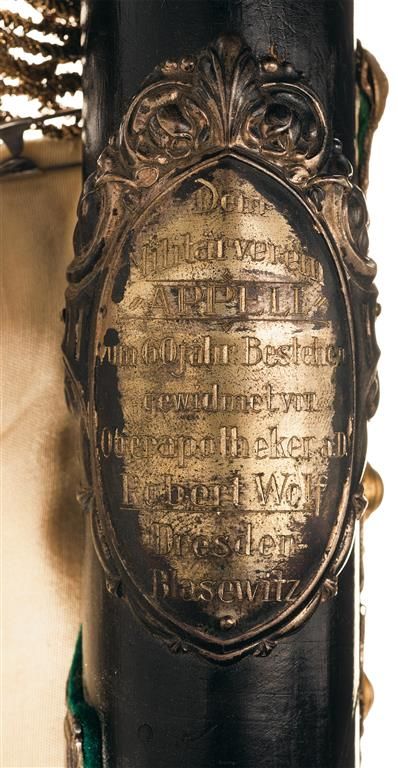 Dem
Militärverein
»APPELL«
zum 60jähr. Bestehen
gewidmet von
Oberapotheker a.D.
Robert Wolf
Dresden-
Blasewitz